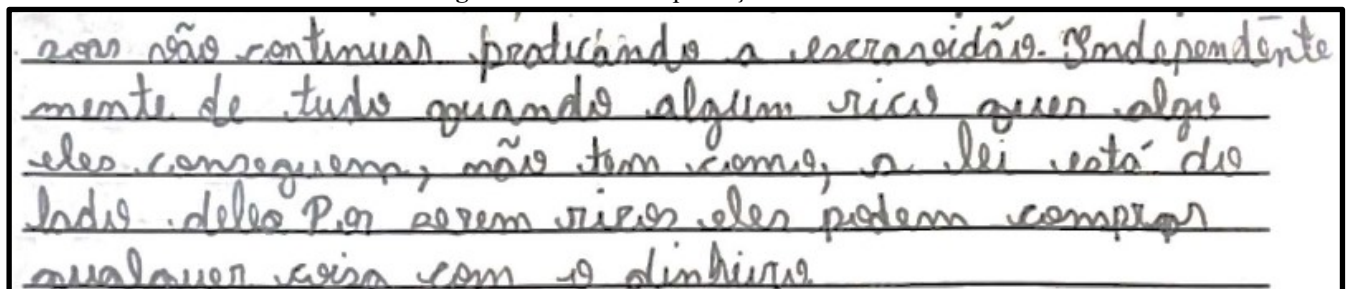 soas vão continuar praticando a escravidão. Independente
mente de tudo quando algum rico quer algo
eles conseguem, não tem como, a lei está do
lado deles Por serem ricos eles podem comprar
qualquer coisa com o dinheiro